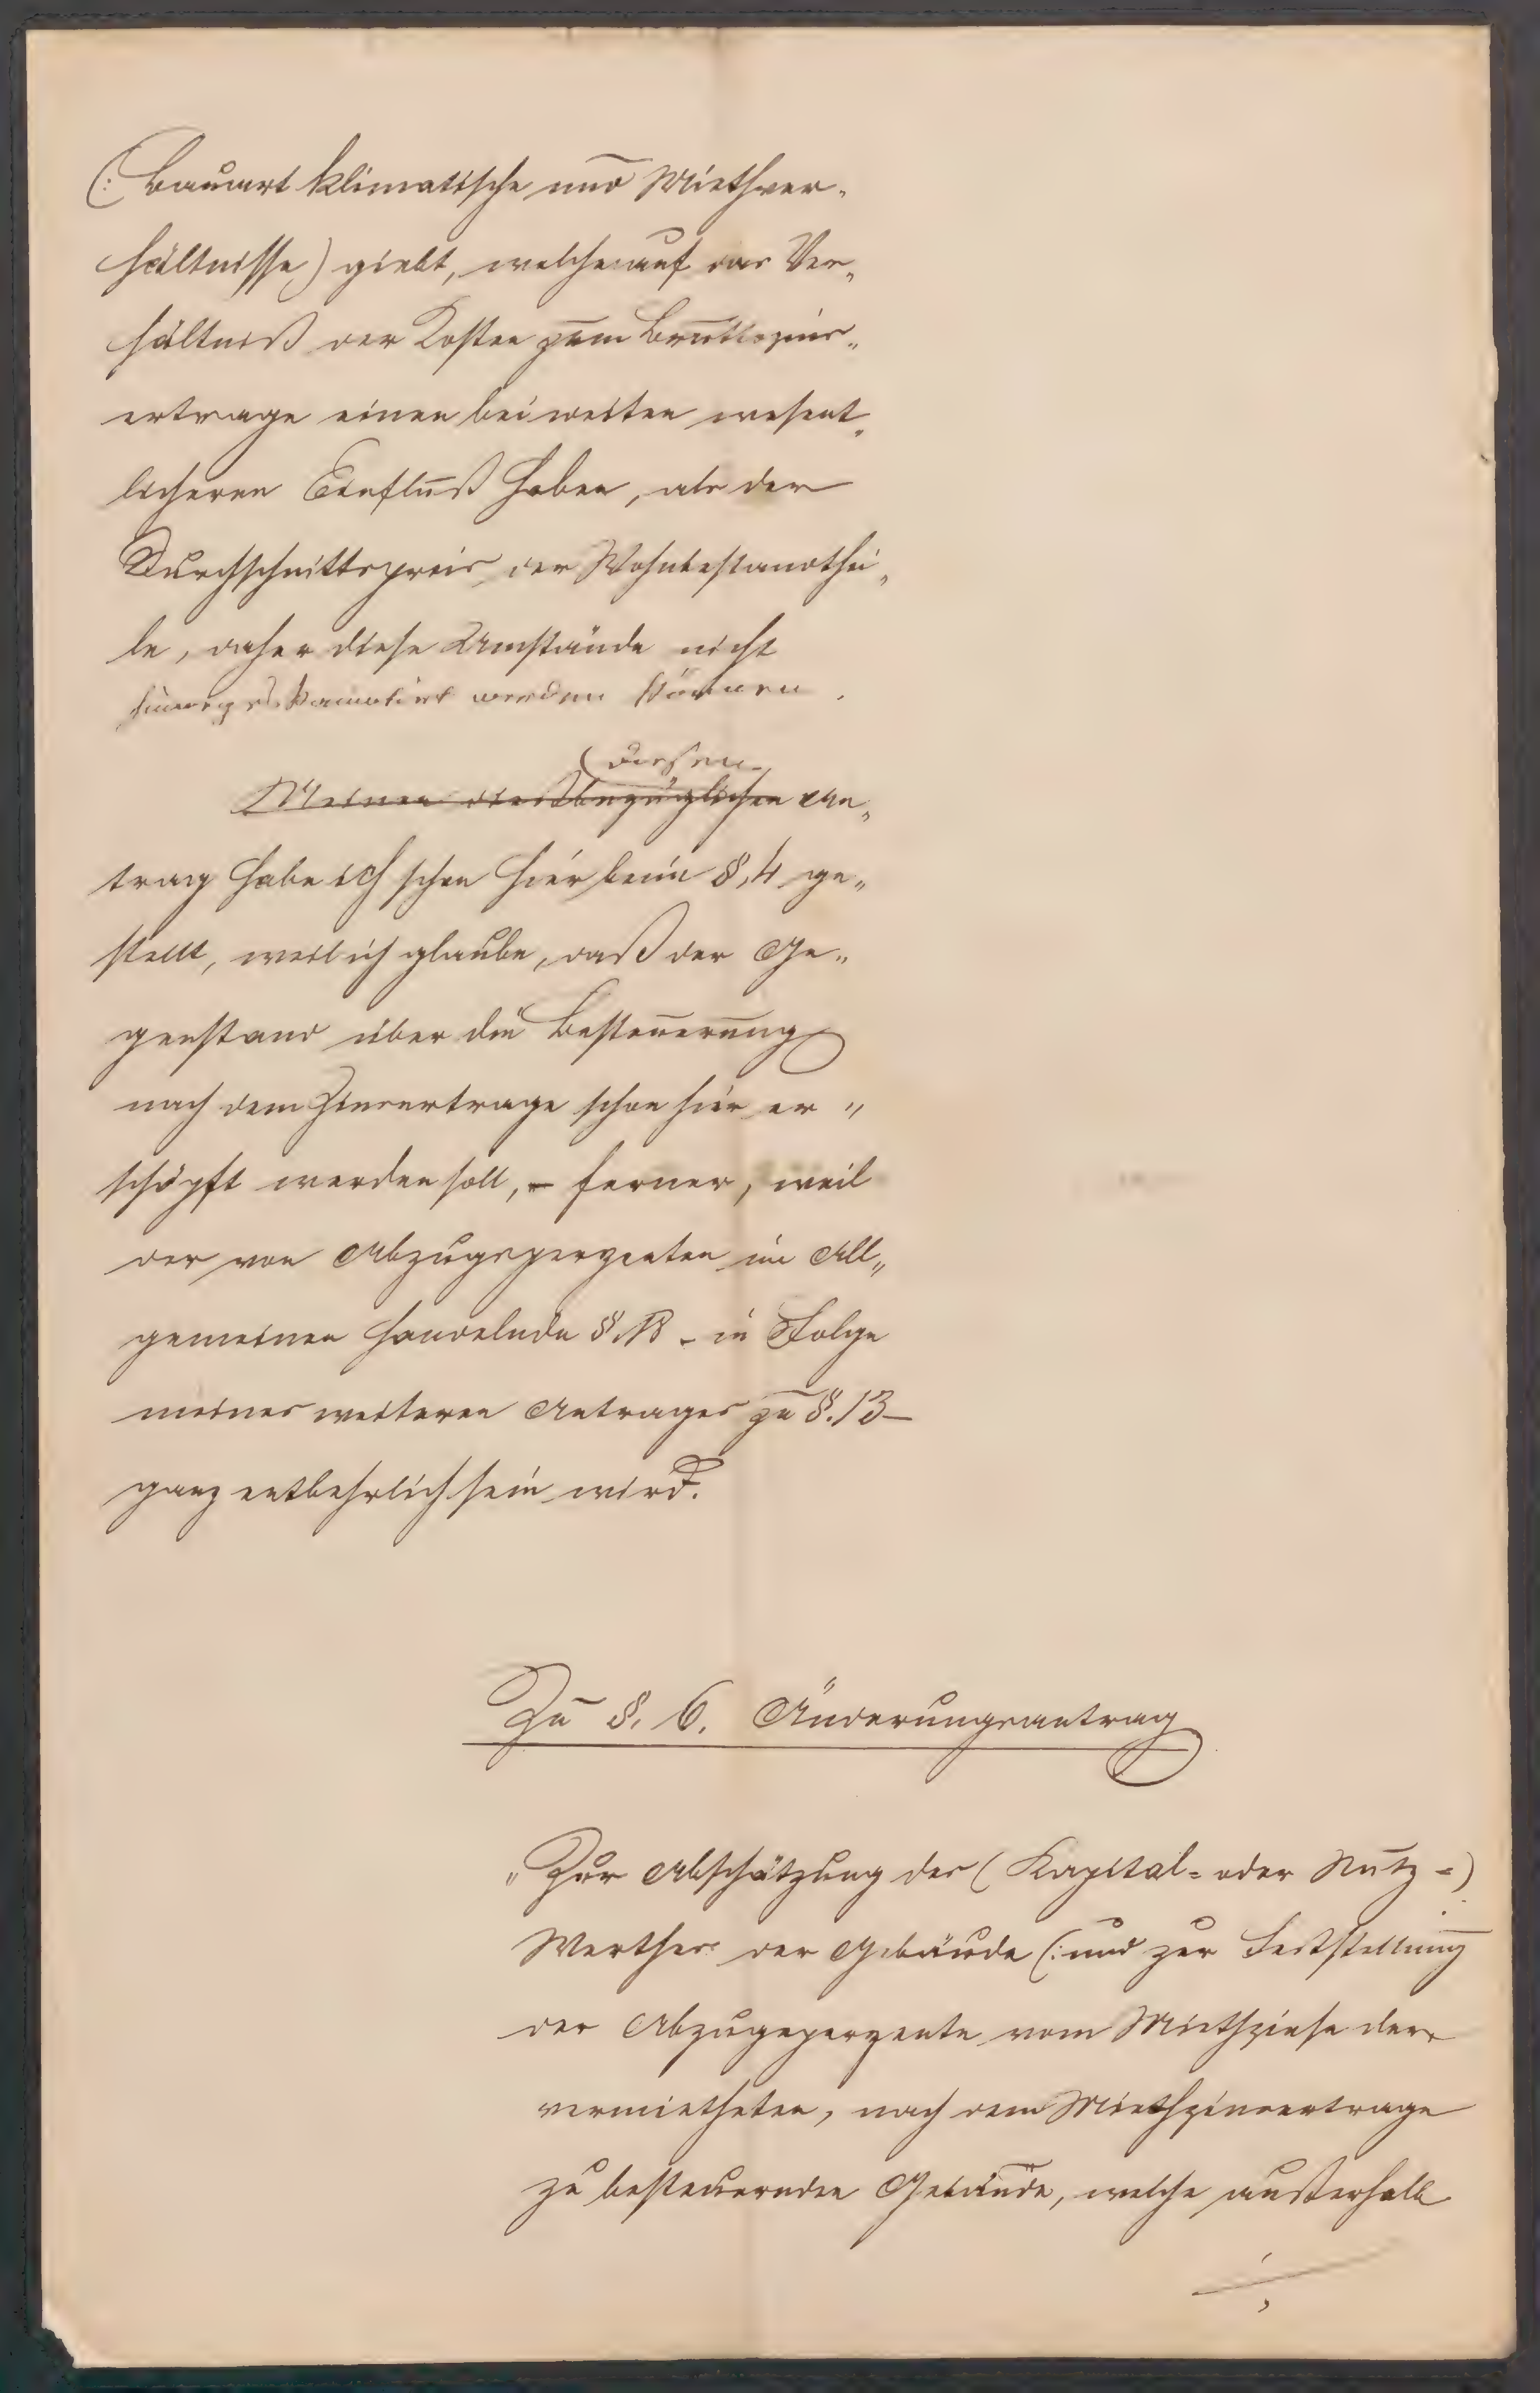 (: Bauart klimatische und Miethver„
hältnisse) giebt, welche auf das Ver„
hältniß der Kosten zum Bruttozins„
ertrage einen bei weiten wesent„
licheren Einfluß haben, als der
Durchschnittspreis der Wohnbestandthei„
le, daher diese Umstände nicht
werden können.
diesen
Meinen dießbezüglichen An„
trag habe ich schon hier beim §. 4 ge„
stellt, weil ich glaube, daß der Ge„
genstand über die Besteuerung
nach dem Zinsertrage schon hier er„
schöpft werden soll, – ferner, weil
der von Abzugsperzenten im All„
gemeinen handelnde §. 13 – in Folge
meines weiteren Antrages zu §. 13 –
ganz entbehrlich sein wird.
Zu §. 6. Änderungsantrag
„Zur Abschätzung des (Kapital- oder Nutz-)
Werthes der Gebäude (: und zur Feststellung
der Abzugsperzente vom Miethzinse der
vermietheten, nach dem Miethzinsertrage
zu besteuernden Gebäude, welche außerhalb